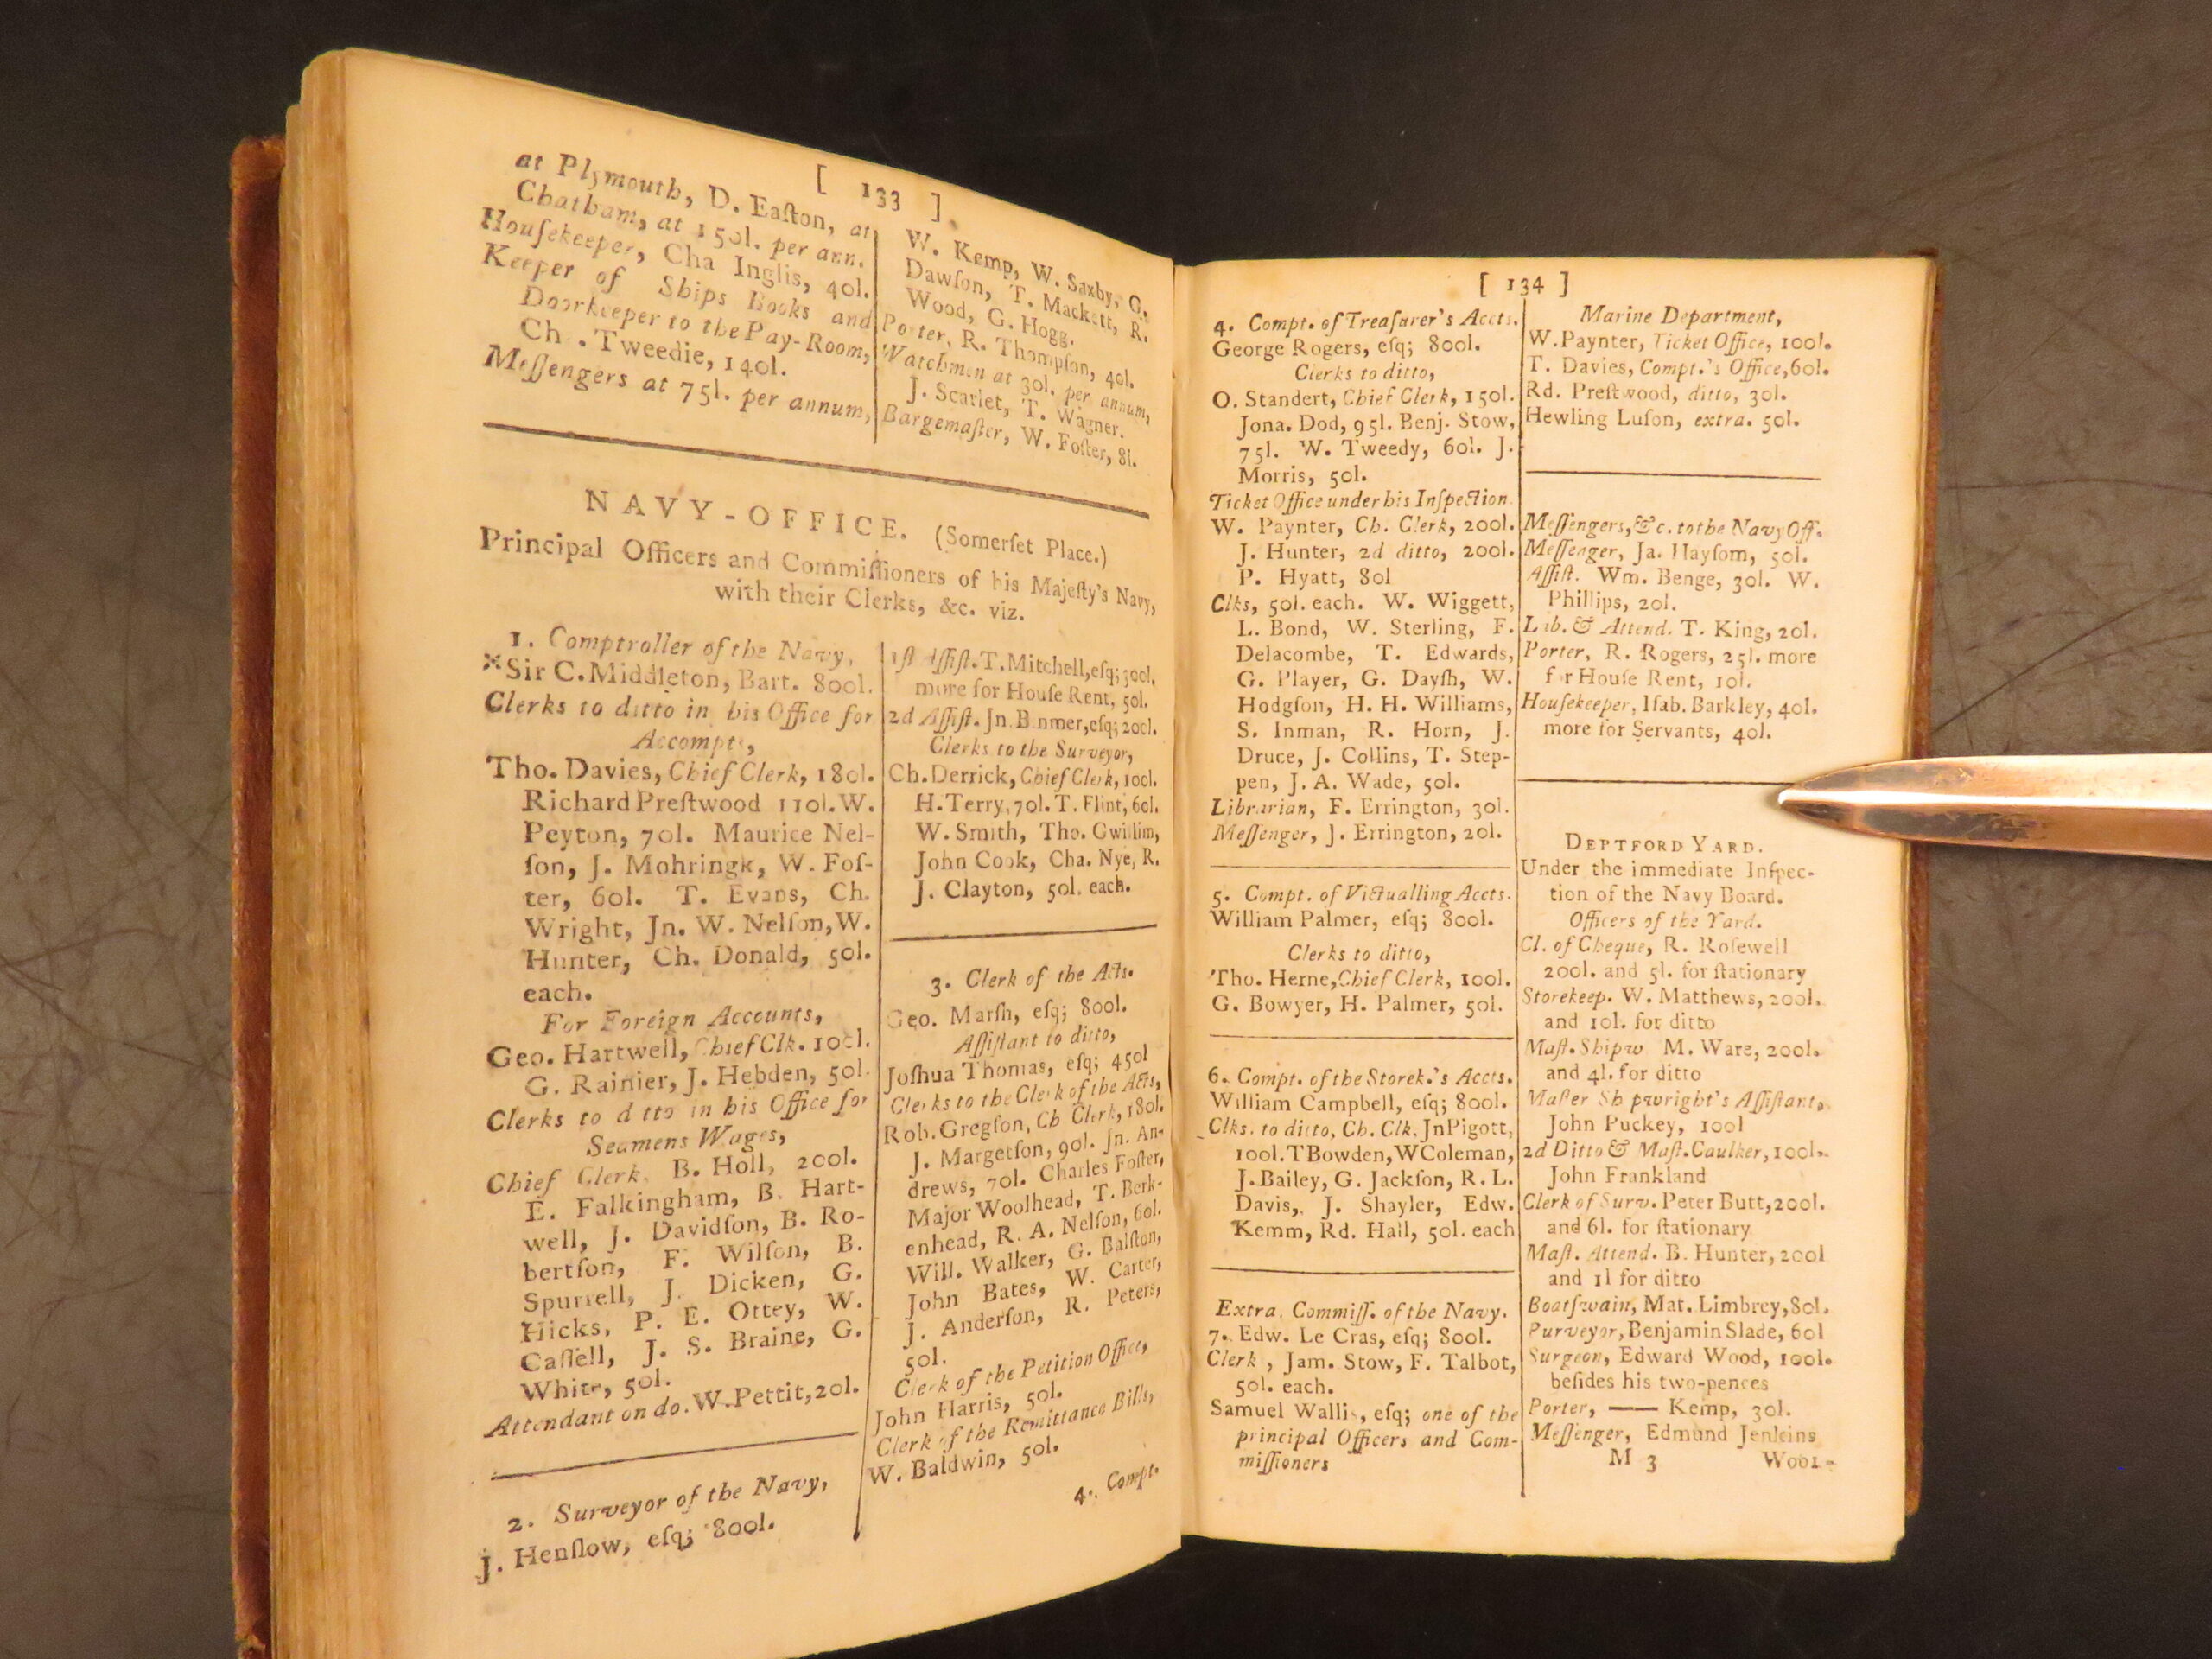 [ 133 ]
at Plymouth, D. Eaſton, at
Chatham, at 150l. per ann.
Houſekeeper, Cha Inglis, 40l.
Keeper of Ships Books and
Doorkeeper to the Pay-Room,
Ch. Tweedie, 140l.
Meſſengers at 75l. per annum,
W. Kemp, W. Saxby, G.
Dawſon, T. Mackett, R.
Wood, G. Hogg.
Porter, R. Thompſon, 40l.
Watchmen at 30l. per annum,
J. Scarlet, T. Wagner.
Bargemaſter, W. Foſter, 8l.
NAVY-OFFICE. (Somerſet Place.)
Principal Officers and Commiſſioners of his Majeſty's Navy,
with their Clerks, &c. viz.
1. Comptroller of the Navy,
Sir C. Middleton, Bart. 800l.
Clerks to ditto in his Office for
Accompts,
Tho. Davies, Chief Clerk, 180l.
Richard Preſtwood 110l. W.
Peyton, 70l. Maurice Nel-
ſon, J. Mohringk, W. Foſ-
ter, 60l. T. Evans, Ch.
Wright, Jn. W. Nelſon, W.
Hunter, Ch. Donald, 50l.
each.
For Foreign Accounts,
Geo. Hartwell, Chief Clk. 100l.
G. Rainier, J. Hebden, 50l.
Clerks to ditto in his Office for
Seamens Wages,
Chief Clerk, B. Holl, 200l.
E. Falkingham, B. Hart-
well, J. Davidſon, B. Ro-
bertſon, F. Wilſon, B.
Spurrell, J. Dicken, G.
Hicks, P. E. Ottey, W.
Caſſell, J. S. Braine, G.
White, 50l.
Attendant on do. W. Pettit, 20l.
2. Surveyor of the Navy,
J. Henſlow, eſq; 800l.
1ſt Aſſiſt. T. Mitchell, eſq; 300l.
more for Houſe Rent, 50l.
2d Aſſiſt. Jn. Binmer, eſq; 200l.
Clerks to the Surveyor,
Ch. Derrick, Chief Clerk, 100l.
H. Terry, 70l. T. Flint, 60l.
W. Smith, Tho. Gwillim,
John Cook, Cha. Nye, R.
J. Clayton, 50l. each.
3. Clerk of the Acts.
Geo. Marſh, eſq; 800l.
Aſſiſtant to ditto,
Joſhua Thomas, eſq; 450l
Clerks to the Clerk of the Acts,
Rob. Gregſon, Ch Clerk, 180l.
J. Margetſon, 90l. Jn. An-
drews, 70l. Charles Foſter,
Major Woolhead, T. Berk-
enhead, R. A. Nelſon, 60l.
Will. Walker, G. Balſton,
John Bates, W. Carter,
J. Anderſon, R. Peters,
50l.
Clerk of the Petition Office,
John Harris, 50l.
Clerk of the Remittance Bills,
W. Baldwin, 50l.
4. Compt.
[ 134 ]
4. Compt. of Treaſurer's Accts.
George Rogers, eſq; 800l.
Clerks to ditto,
O. Standert, Chief Clerk, 150l.
Jona. Dod, 95l. Benj. Stow,
75l. W. Tweedy, 60l. J.
Morris, 50l.
Ticket Office under his Inſpection.
W. Paynter, Ch. Clerk, 200l.
J. Hunter, 2d ditto, 200l.
P. Hyatt, 80l
Clks, 50l. each. W. Wiggett,
L. Bond, W. Sterling, F.
Delacombe, T. Edwards,
G. Player, G. Dayſh, W.
Hodgſon, H. H. Williams,
S. Inman, R. Horn, J.
Druce, J. Collins, T. Step-
pen, J. A. Wade, 50l.
Librarian, F. Errington, 30l.
Meſſenger, J. Errington, 20l.
5. Compt. of Victualling Accts.
William Palmer, eſq; 800l.
Clerks to ditto,
Tho. Herne, Chief Clerk, 100l.
G. Bowyer, H. Palmer, 50l.
6. Compt. of the Storek.'s Accts.
William Campbell, eſq; 800l.
Clks. to ditto, Ch. Clk. Jn Pigott,
100l. T Bowden, W Coleman,
J. Bailey, G. Jackſon, R. L.
Davis, J. Shayler, Edw.
Kemm, Rd. Hall, 50l. each
Extra. Commiſſ. of the Navy.
7. Edw. Le Cras, eſq; 800l.
Clerk, Jam. Stow, F. Talbot,
50l. each.
Samuel Wallis, eſq; one of the
principal Officers and Com-
miſſioners
Marine Department,
W. Paynter, Ticket Office, 100l.
T. Davies, Compt.'s Office, 60l.
Rd. Preſtwood, ditto, 30l.
Hewling Luſon, extra. 50l.
Meſſengers, &c. to the Navy Off.
Meſſenger, Ja. Hayſom, 50l.
Aſſiſt. Wm. Benge, 30l. W.
Phillips, 20l.
Lib. & Attend. T. King, 20l.
Porter, R. Rogers, 25l. more
for Houſe Rent, 10l.
Houſekeeper, Iſab. Barkley, 40l.
more for Servants, 40l.
DEPTFORD YARD.
Under the immediate Inſpec-
tion of the Navy Board.
Officers of the Yard.
Cl. of Cheque, R. Roſewell
200l. and 5l. for ſtationary
Storekeep. W. Matthews, 200l.
and 10l. for ditto
Maſt. Shipw M. Ware, 200l.
and 4l. for ditto
Maſter Shipwright's Aſſiſtant,
John Puckey, 100l
2d Ditto & Maſt. Caulker, 100l.
John Frankland
Clerk of Surv. Peter Butt, 200l.
and 6l. for ſtationary
Maſt. Attend. B. Hunter, 200l
and 1l for ditto
Boatſwain, Mat. Limbrey, 80l.
Purveyor, Benjamin Slade, 60l
Surgeon, Edward Wood, 100l.
beſides his two-pences
Porter, —— Kemp, 30l.
Meſſenger, Edmund Jenkins
M 3 Wool-